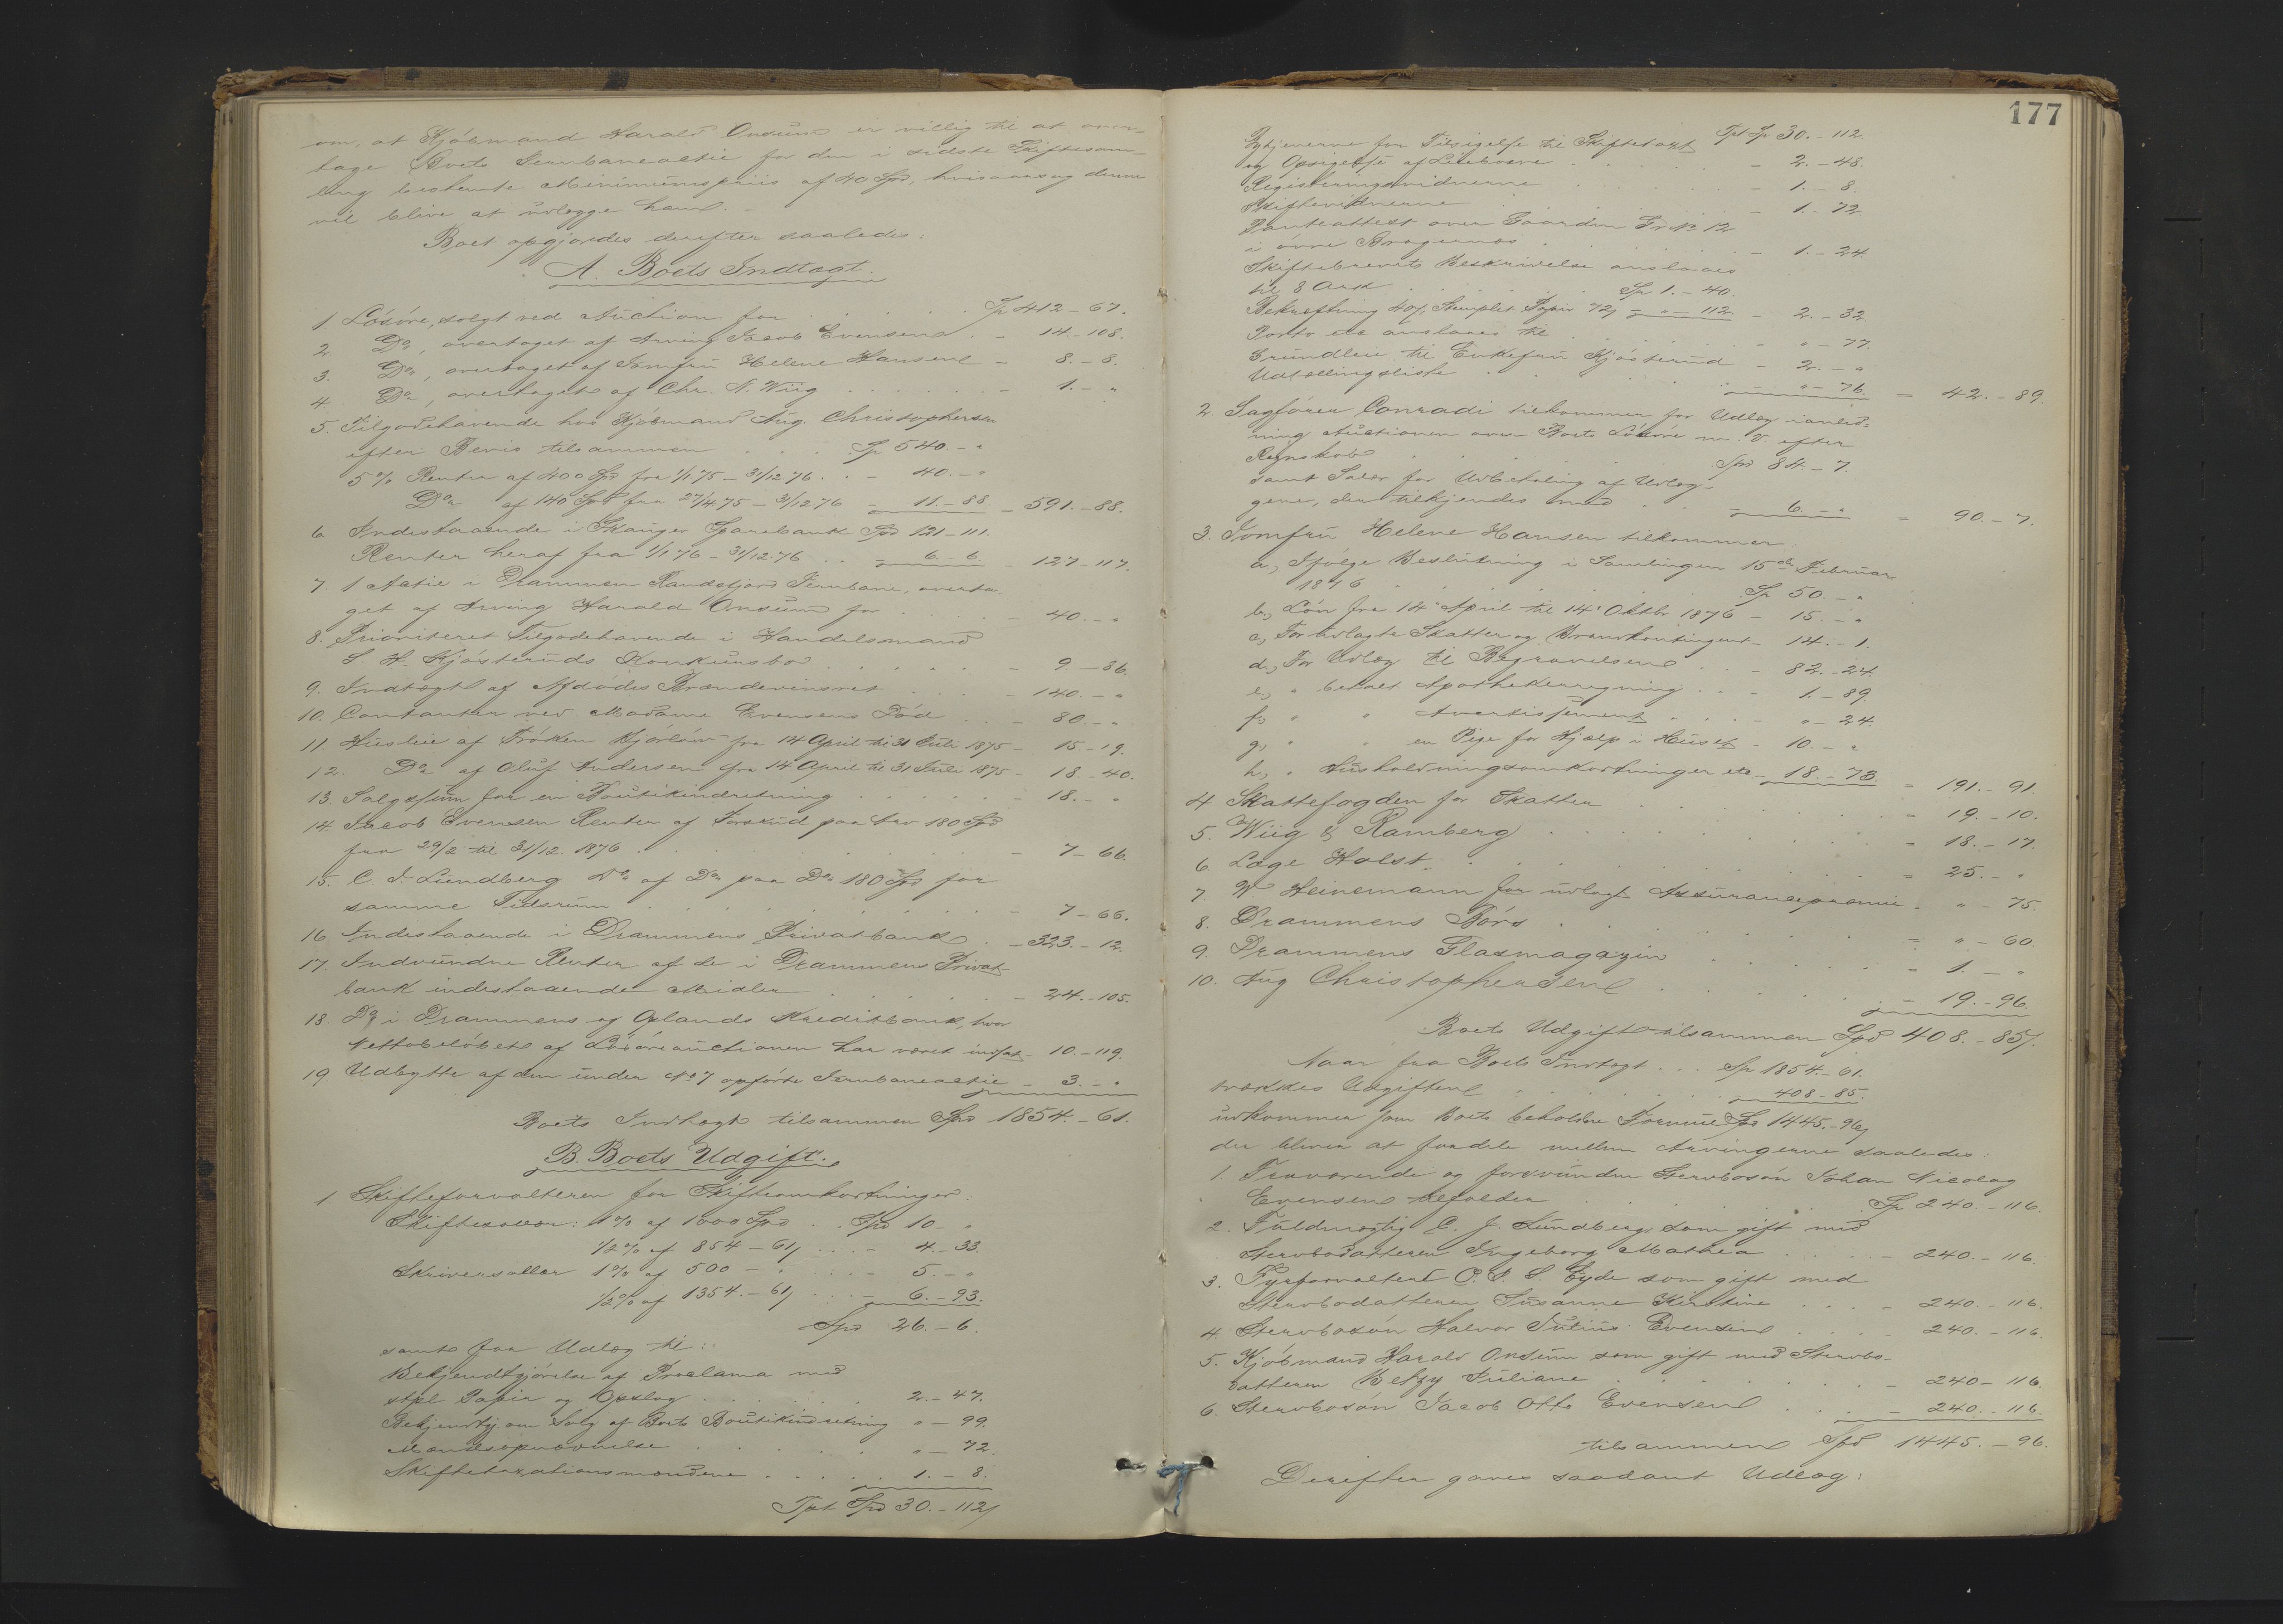 om, at Kjöbmand Harald Onsum er villig til at over-
tage Boets Jernbaneactie for den i sidste Skiftesam-
ling bestemte Minimumspriis af 40 Spd, hvisaarsag denne
vil blive at udlægge ham. -
Boet opgjordes derefter saaledes:
A. Boets Indtægt.
1. Lösöre, solgt ved Auction for . . . . . Sp 412 - 67.
2. Do, overtaget af Arving Jacob Evensen . - 14 - 108.
3. Do, overtaget af Jomfru Helene Hansen - 8. - 8.
4. Do, overtaget af Chr. N. Wiig . . . . . . - 1. - "
5. Tilgodehavende hos Kjöbmand Aug. Christophersen
efter Bevis tilsammen . . . . Sp 540. - "
5% Renter af 400 Spd fra 1/1 75 - 31/12 76 . . - 40. - "
Do af 140 Spd fra 27/4 75 - 31/12 76 - 11. - 88 - 591. - 88.
6. Indestaaende i Skauger Sparebank Spd 121 - 111.
Renter heraf fra 1/1 76 - 31/12. 76 . . - 6 - 6. - 127 - 117.
7. 1 Actie i Drammen Randsfjord Jernbane, overta-
get af Arving Harald Onsum for . . . . . - 40. - "
8. Prioriteret Tilgodehavende i Handelsmand
S. H. Kjösteruds Konkursbo . . . . . . - 9. - 86.
9. Indtægt af Afdödes Brændevinsret . . . . - 140. - "
10. Contanter ved Madame Evensens Död . . - 80. - "
11. Husleie af Fröken Kjærlöw fra 14 April til 31 Juli 1875 - 15 - 19.
12. Do af Oluf Andersen fra 14 April til 31 Juli 1875 - 18. - 40.
13. Salgssum for en Boutikindretning . . . . . . - 18. - "
14. Jacob Evensen Renter af Forskud paa Arv 180 Spd
fra 29/2 til 31/12. 1876 . . . . . . . . . - 7 - 66.
15. C. J. Lundberg Do af Do paa Do 180 Spd for
samme Tidsrum . . . . . . . . . . - 7 - 66.
16. Indestaaende i Drammens Privatbank . - 323. - 12.
17. Indvundne Renter af de i Drammens Privat-
bank indestaaende Midler . . . . . . - 24. - 105.
18. Do i Drammens og Oplands Kreditbank, hvor
Nettobelöbet af Lösöreauctionen har været indsat - 10. - 119.
19. Udbytte af den under No 7 opförte Jernbaneactie - 3. - "
Boets Indtægt tilsammen Spd 1854. - 61.
B. Boets Udgift.
1. Skifteforvalteren for Skifteomkostninger:
Skiftesalær: 1% af 1000 Spd . . Spd 10 - "
1/2% af 854 - 61 . . . . - 4. - 33.
Skriversallær 1% af 500 - " . . . . - 5. - "
1/2% af 1354. - 61 . . . - 6. - 93.
Spd 26. - 6.
samt for Udlæg til:
Bekjendtgjörelse af Proclama med
stpl Papir og Opslag . . . . . . 2. - 47.
Bekjendtgj. om Salg af Boets Boutikindretning " - 99.
Mændsopnævnelse . . . . . . " - 72.
Skiftetaxationsmændene . . . . . 1. - 8.
Tpt Spd 30. - 112
177
Tpt Sp 30. - 112.
Bytjenerne for Tilsigelse til Skiftetaxt
og Opsigelse af Leieboere . . . . - 2. - 48.
Registeringsvidnerne . . . . . - 1. - 8.
Skiftevidnerne . . . . . . - 1. - 72
Panteattest over Gaarden Gr. No 12
i övre Bragernæs . . . . . . . - 1. - 24.
Skiftebrevets Beskrivelse anslaaes
til 8 Ark . . . . . . Sp 1. - 40.
Bekræftning 40, Stemplet Papir 72 - " - 112. - 2. - 32.
Porto etc anslaaes til . . . . . - " - 77.
Grundleie til Enkefru Kjösterud - 2. - "
Udtællingsliste . . . . . . . - " - 76. = 42. - 89.
2. Sagförer Conradi tilkommer for Udlæg i anled-
ning Auctionen over Boets Lösöre m. v. efter
Regnskab . . . . . . . Spd 84. - 7.
samt Salær for Udbetaling af Udlæg-
gene, der tilkjendes med . . - 6. - " = 90. - 7.
3. Jomfru Helene Hansen tilkommer:
a, Ifölge Beslutning i Samlingen 15de Februar
1876 . . . . . . . Sp 50. - "
b, Lön fra 14 April til 14 Oktbr 1876 - 15. - "
c, For udlagte Skatter og Brandkontingent - 14. - 1.
d, For Udlæg til Begravelsen . . - 82. - 24.
e, " betalt Apothekerregning . . - 1. - 89.
f, " " Avertissement . . . . - " - 24.
g, " " en Pige for Hjælp i Huset - 10. - "
h, " Husholdningsomkostninger etc - 18. - 73. = 191. - 91.
4. Skattefogden for Skatter . . . . . . = 19. - 10.
5. Wiig & Ramberg . . . . . . . = 18. - 17.
6. Læge Holst . . . . . . . . = 25. - "
7. W Heinemann for udlagt Assurancepræmie . " - 75.
8. Drammens Börs . . . . . . . = " - 60
9. Drammens Glasmagazin . . . . . . = 1. - "
10. Aug Christophersen . . . . . . = 19. - 96
Boets Udgift tilsammen Spd 408. - 85.
Naar fra Boets Indtægt . . . Sp 1854. - 61.
trækkes Udgiften . . . . . . - 408 - 85.
udkommer som Boets beholdne Formue Spd 1445. - 96,
der bliver at fordele mellem Arvingerne saaledes:
1. Fraværende og forsvunden Stervbosön Johan Nicolay
Evensen tilfalder . . . . . . Sp 240. - 116.
2. Fuldmægtig C. J. Lundberg som gift med
Stervbodatteren Ingeborg Mathea . . . . - 240. - 116.
3. Fyrforvalter O. P. S. Eyde som gift med
Stervbodatteren Susanne Kirstine . . . - 240. - 116.
4. Stervbosön Halvor Julius Evensen . . . . - 240. - 116.
5. Kjöbmand Harald Onsum som gift med Stervbo-
datteren Betzy Juliane . . . . . . - 240 - 116.
6. Stervbosön Jacob Otto Evensen . . . . - 240. - 116.
tilsammen Spd 1445. - 96.
Derefter gaves saadant Udlæg: